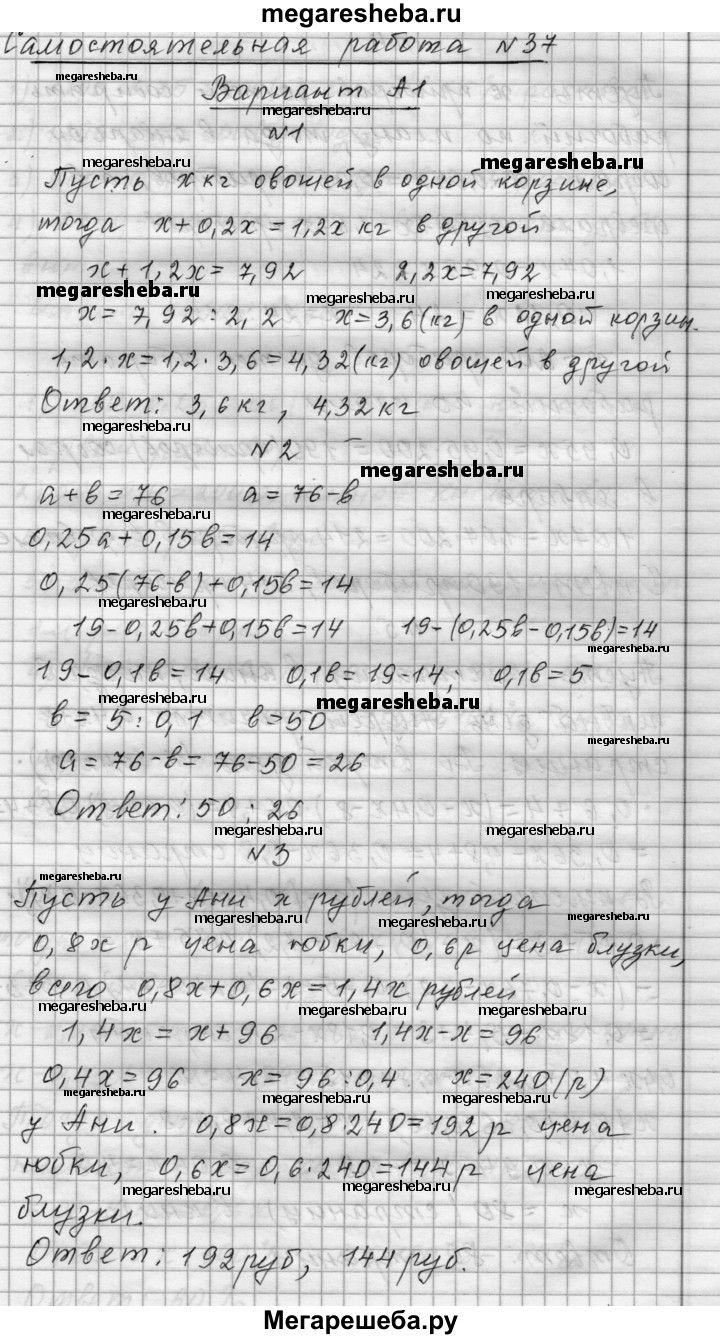 megaresheba.ru
Самостоятельная работа №37
megaresheba.ru
Вариант А1
megaresheba.ru
№1
megaresheba.ru megaresheba.ru
Пусть х кг овощей в одной корзине,
тогда х+0,2х=1,2х кг в другой
х+1,2х=7,92 2,2х=7,92
megaresheba.ru megaresheba.ru megaresheba.ru
х=7,92:2,2 х=3,6(кг) в одной корзин.
1,2·х=1,2·3,6=4,32(кг) овощей в другой
Ответ: 3,6кг, 4,32кг
megaresheba.ru
№2
megaresheba.ru
а+в=76 а=76-в
megaresheba.ru
0,25а+0,15в=14
0,25(76-в)+0,15в=14
megaresheba.ru
19-0,25в+0,15в=14 19-(0,25в-0,15в)=14
megaresheba.ru
19-0,1в=14 0,1в=19-14; 0,1в=5
megaresheba.ru megaresheba.ru
в=5:0,1 в=50
megaresheba.ru
а=76-в=76-50=26
Ответ: 50; 26
megaresheba.ru megaresheba.ru
№3
megaresheba.ru
Пусть у Ани х рублей, тогда
megaresheba.ru megaresheba.ru megaresheba.ru
0,8х р цена юбки, 0,6р цена блузки,
всего 0,8х+0,6х=1,4х рублей
megaresheba.ru megaresheba.ru megaresheba.ru
1,4х=х+96 1,4х-х=96
0,4х=96 х=96:0,4 х=240(р)
megaresheba.ru megaresheba.ru megaresheba.ru
у Ани. 0,8х=0,8·240=192р цена
юбки, 0,6х=0,6·240=144р цена
megaresheba.ru megaresheba.ru megaresheba.ru
блузки.
Ответ: 192руб, 144руб.
Мегарешеба.ру